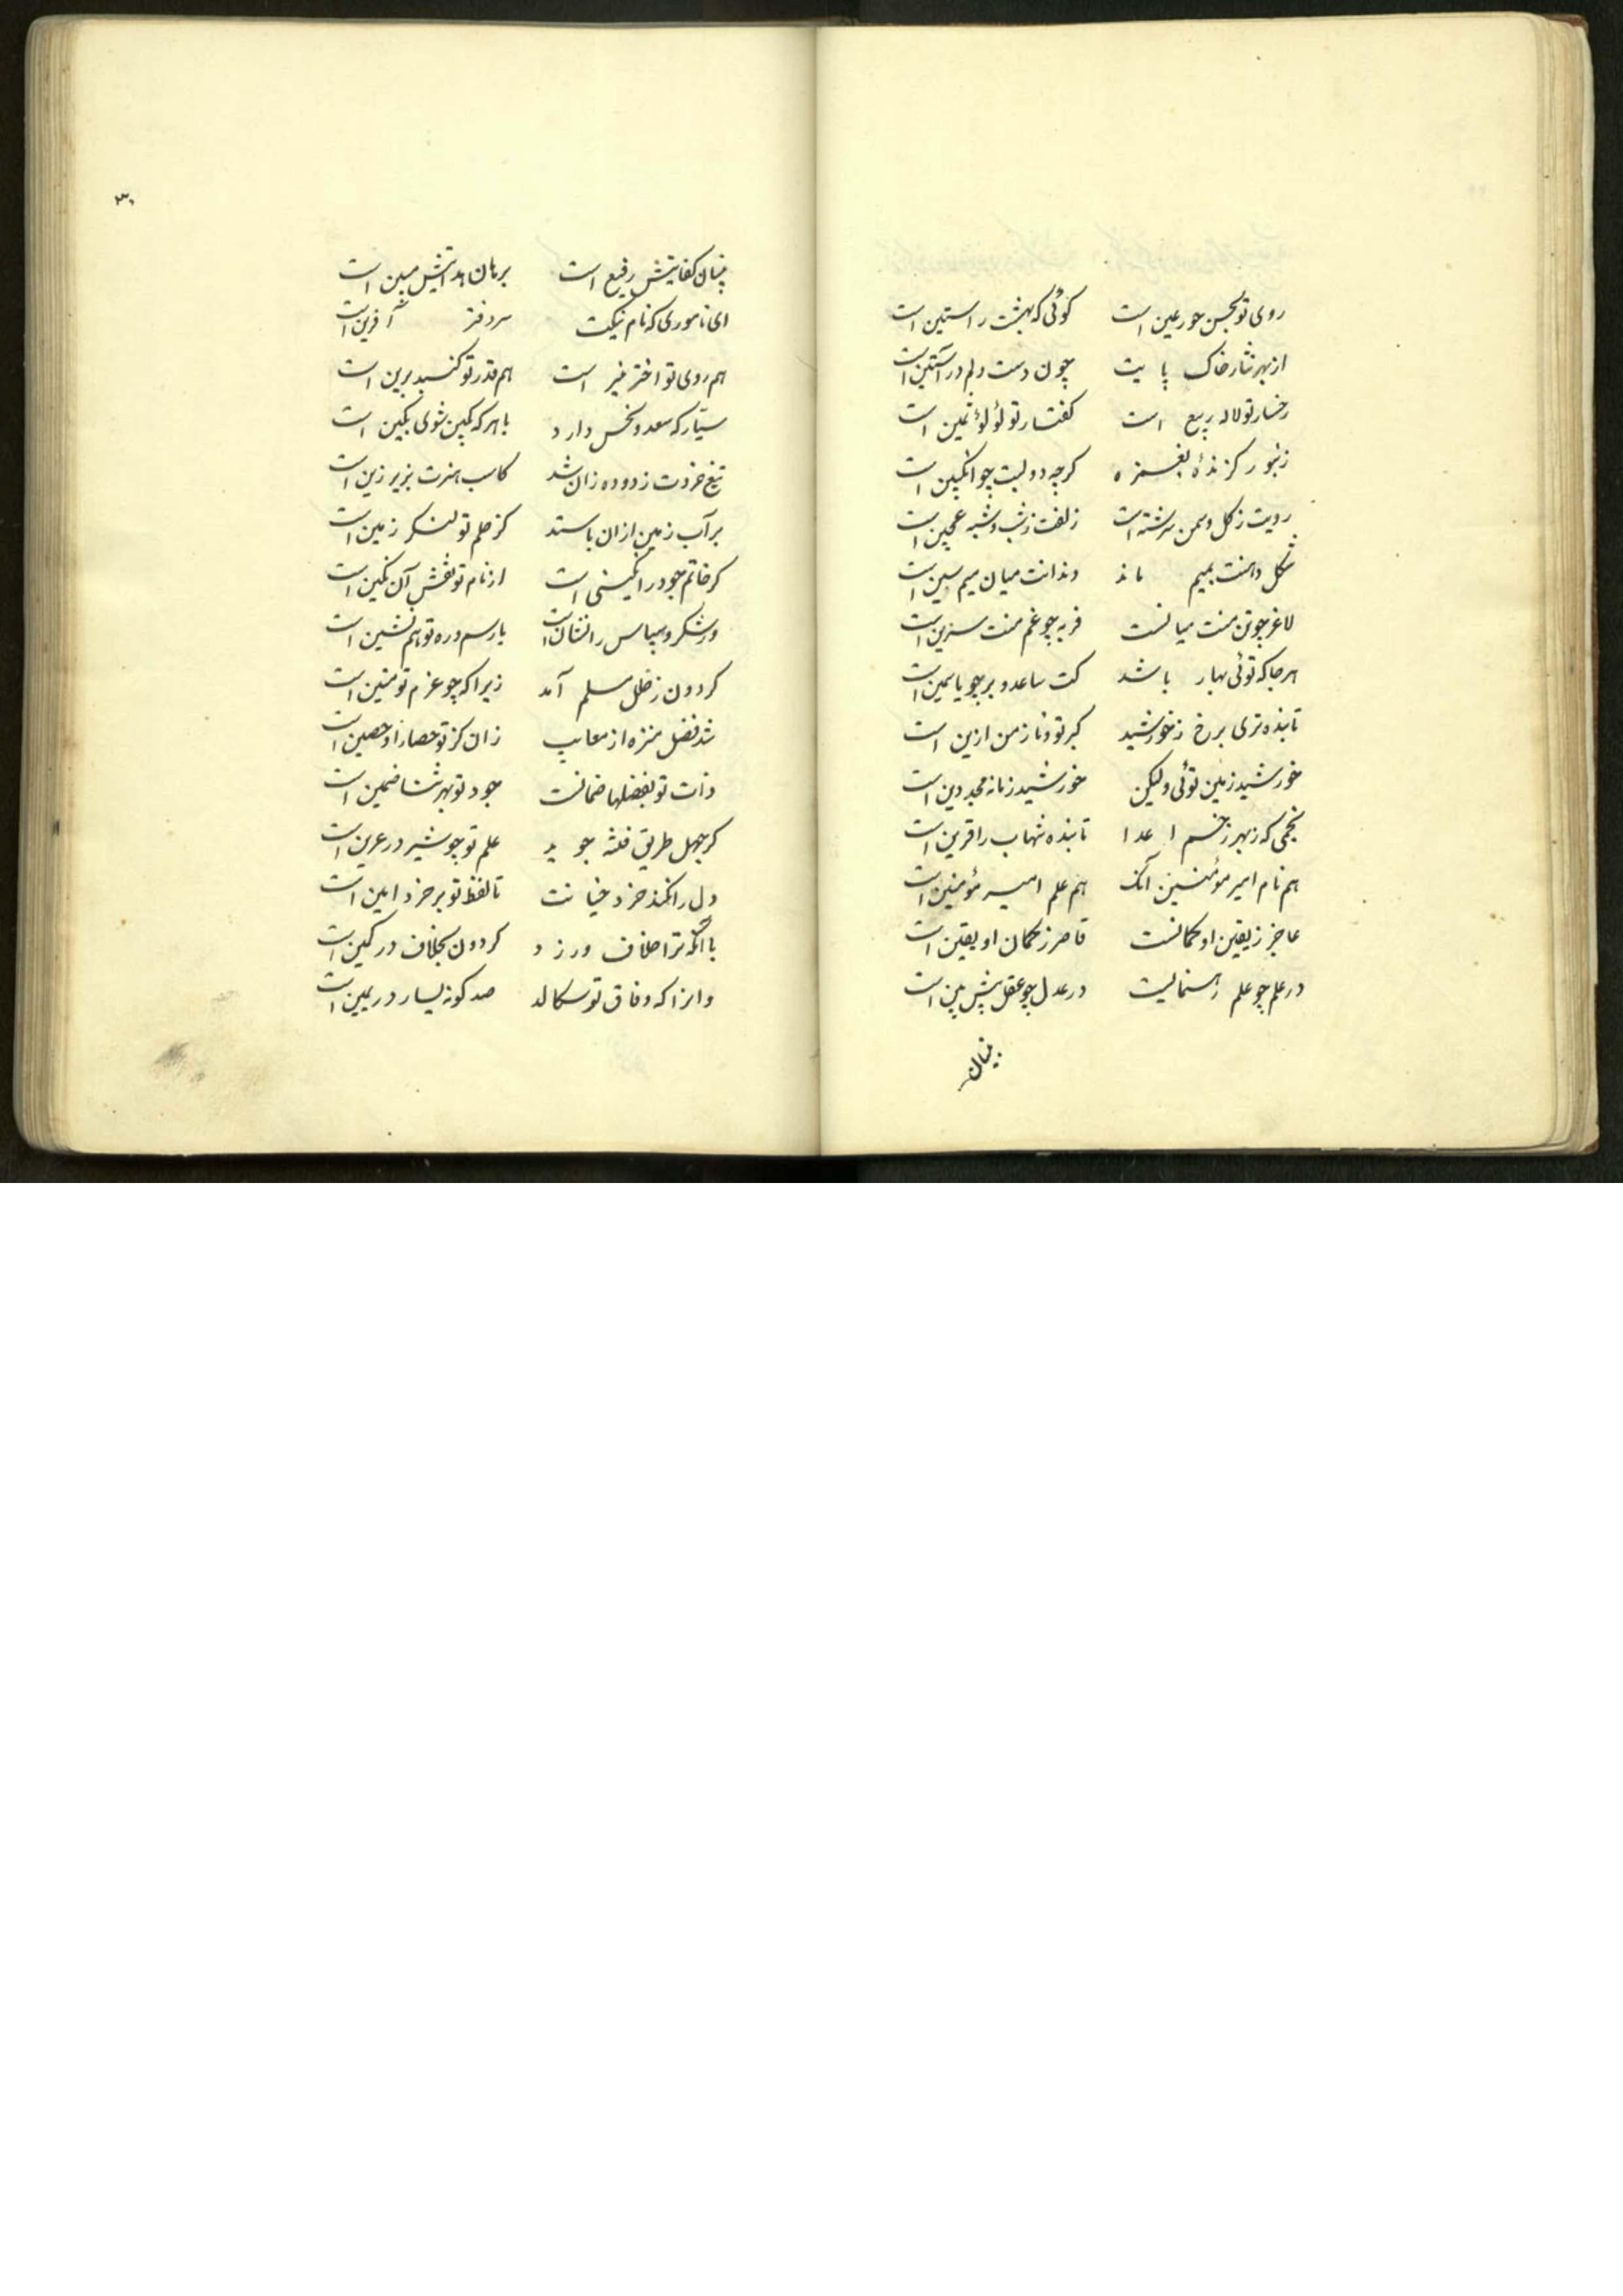 روی تو بحسن حور عین است گوئی که بهشت راستین است
از بهر نثار خاک پایت چون دست دلم در آستین است
رخسار تو لاله ربیع است گفتار تو لؤلؤ ثمین است
زنبور گزندهٔ بغمزه گرچه دو لبت چو انگبین است
رویت ز گل و سمن سرشته است زلفت ز شب و شبه عجین است
شکل دهنت بمیم ماند دندانت میان میم سین است
لاغر چو تن منت میانست فربه چو غم منت سرین است
هر جا که توئی بهار باشد کت ساعد و بر چو یاسمین است
تابنده تری برخ ز خورشید کبر تو و ناز من ازین است
خورشید زمین توئی ولیکن خورشید زمانه مجد دین است
نجمی که ز بهر زخم اعدا تابنده شهاب را قرین است
هم نام امیر مؤمنین آنک هم علم امیر مؤمنین است
عاجز ز یقین او گمانست قاصر ز گمان او یقین است
در علم چو علم رهنمایست در عدل چو عقل پیش بین است
بنیان
۳۰
بنیان کفایتش رفیع است برهان هدایتش مبین است
ای ناموری که نام نیکت سر دفتر آفرین است
هم روی تو اختر منیر است هم قدر تو گنبد برین است
سیاره که سعد و نحس دارد با هر که بکین شوی بکین است
تیغ خردت زدوده زان شد کاسب هنرت بزیر زین است
بر آب زمین ازان باستد کز حلم تو لنگر زمین است
گر خاتم جود را نگینی است از نام تو نقش آن نگین است
ور شکر و سپاس را نشان است با رسم و ره تو هم نشین است
گردون ز خلل مسلم آمد زیرا که چو عزم تو متین است
شد فضل منزه از معایب زان کز تو حصار او حصین است
ذات تو بفضلها ضمانست جود تو بهر ثنا ضمین است
گر جهل طریق فتنه جوید علم تو چو شیر در عرین است
دل را نکند خرد خیانت تا لفظ تو بر خرد امین است
با آنکه ترا خلاف ورزد گردون بخلاف در کمین است
وانرا که وفاق تو سگالد صد گونه یسار در یمین است